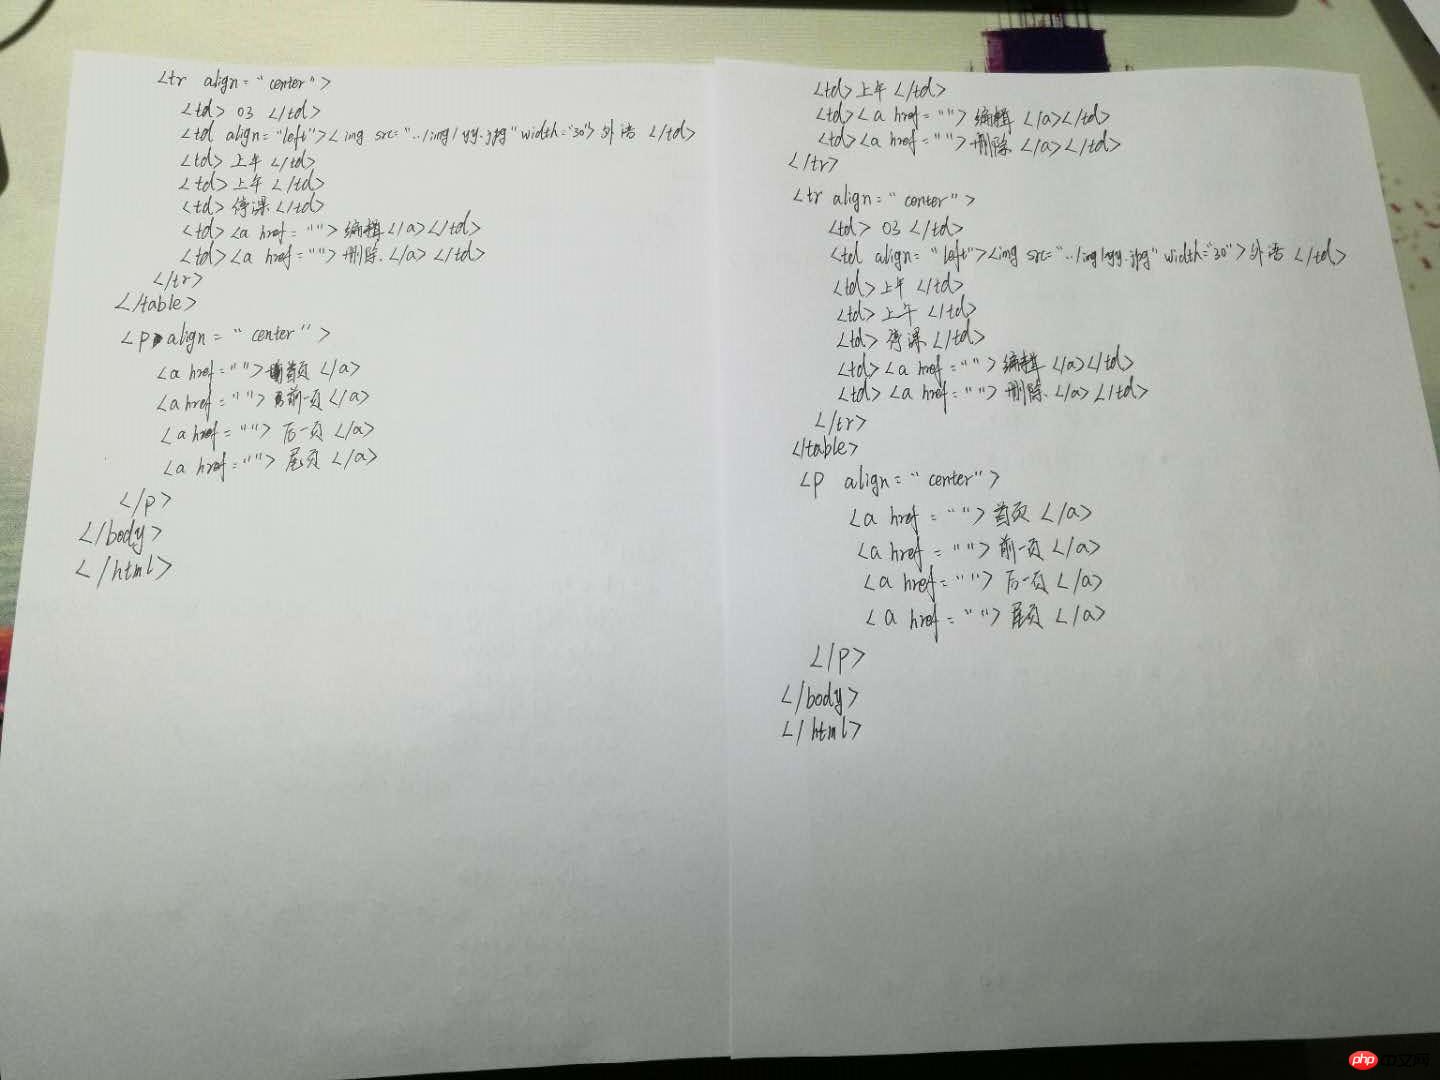 <tr align="center">
<td> 03 </td>
<td align="left"><img src="../img/yy.jpg" width="30"> 外语 </td>
<td> 上午 </td>
<td> 上午 </td>
<td> 停课 </td>
<td> <a href=""> 编辑 </a></td>
<td><a href=""> 删除 </a></td>
</tr>
</table>
<p align="center">
<a href=""> 首页 </a>
<a href=""> 前一页 </a>
<a href=""> 后一页 </a>
<a href=""> 尾页 </a>
</p>
</body>
</html>
<td> 上午 </td>
<td><a href=""> 编辑 </a></td>
<td><a href=""> 删除 </a></td>
</tr>
<tr align="center">
<td> 03 </td>
<td align="left"><img src="../img/yy.jpg" width="30"> 外语 </td>
<td> 上午 </td>
<td> 上午 </td>
<td> 停课 </td>
<td> <a href=""> 编辑 </a></td>
<td> <a href=""> 删除 </a></td>
</tr>
</table>
<p align="center">
<a href=""> 首页 </a>
<a href=""> 前一页 </a>
<a href=""> 后一页 </a>
<a href=""> 尾页 </a>
</p>
</body>
</html>
php 中文网